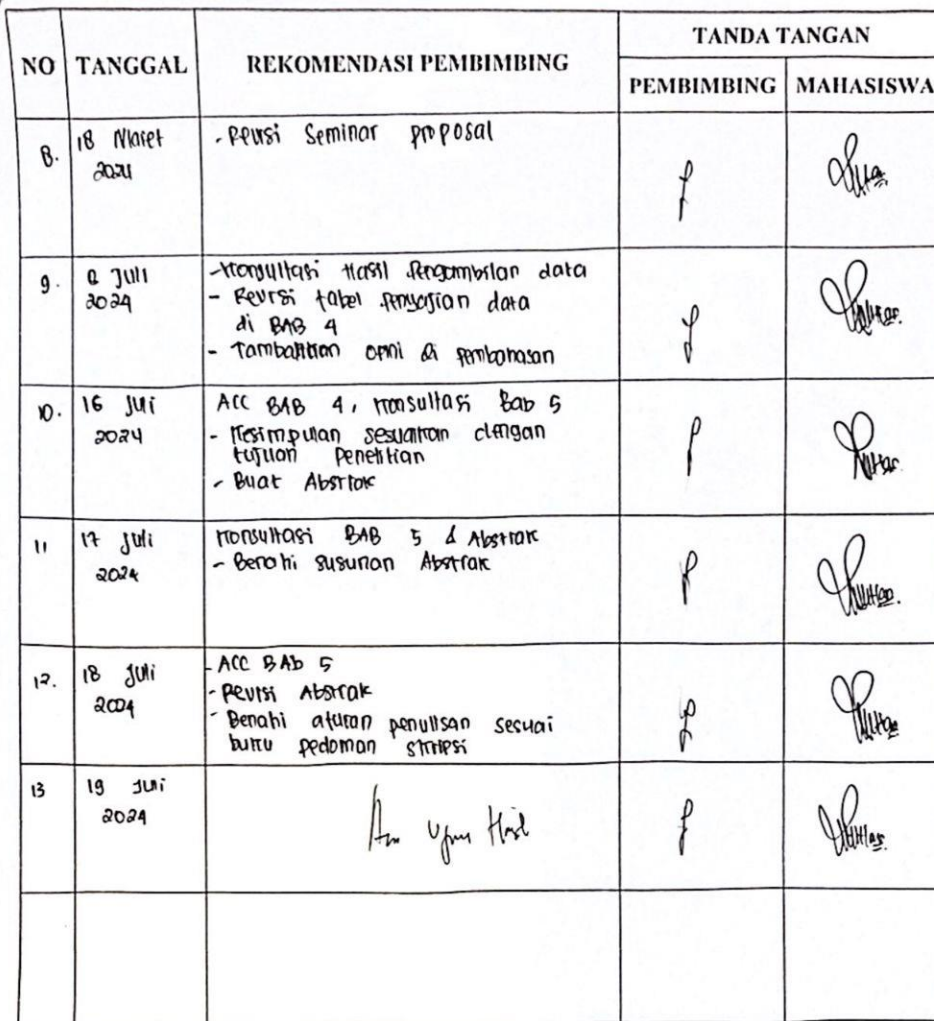 NO TANGGAL REKOMENDASI PEMBIMBING TANDA TANGAN
PEMBIMBING MAHASISWA
8. 18 Maret - Revisi Seminar proposal
2024
9. 2 Juli - Konsultasi Hasil Pengambilan data
2024 - Revisi tabel Penyajian data
di BAB 4
- Tambahkan opini di pembahasan
10. 16 Juli ACC BAB 4, Konsultasi Bab 5
2024 - Kesimpulan sesuaikan dengan
tujuan Penelitian
- Buat Abstrak
11 17 Juli Konsultasi BAB 5 & Abstrak
2024 - Benahi susunan Abstrak
12. 18 Juli - ACC BAb 5
2024 - Revisi Abstrak
- Benahi aturan penulisan sesuai
buku pedoman skripsi
13 19 Juli Acc Ujian Hasil
2024